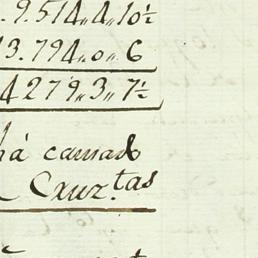 .9.514,,4,,10½
3.794,,0,,6
4279,,3,,7½
há camad
Cruz.tas